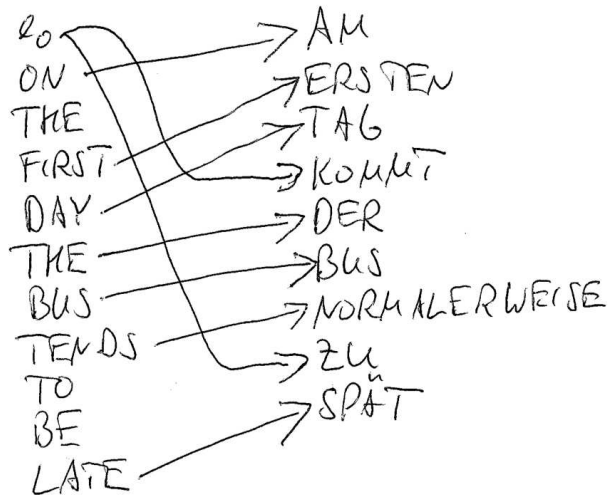 e₀
ON
THE
FIRST
DAY
THE
BUS
TENDS
TO
BE
LATE
AM
ERSTEN
TAG
KOMMT
DER
BUS
NORMALERWEISE
ZU
SPÄT